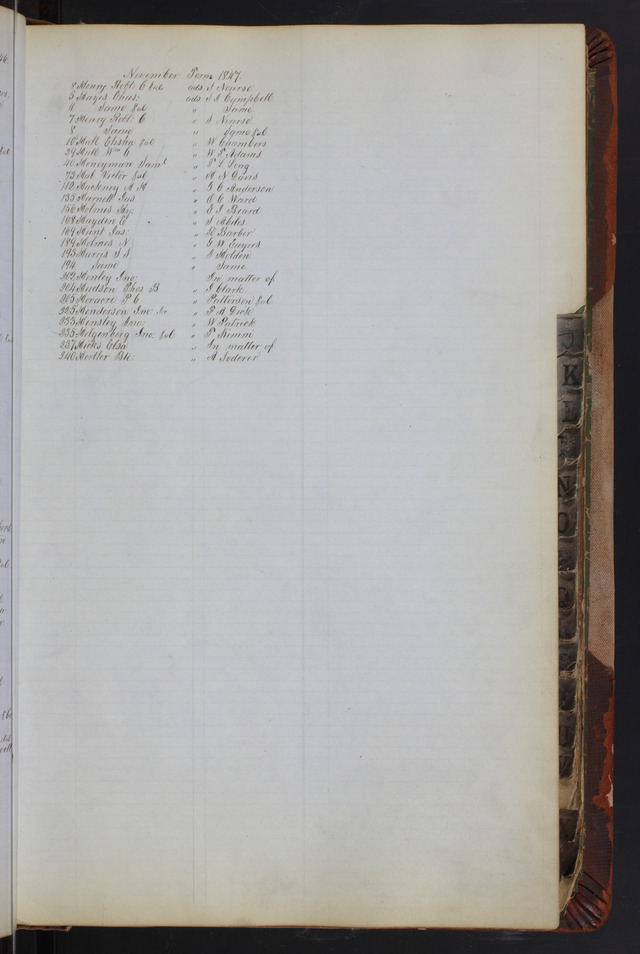 November Term 1847
3 Henry Robt C &al ads J Nourse
5 Hayes Chas: ads J J Campbell
6 Same &al " Same
7 Henry Robt: C " J Nourse
8 Same " Same &al
10 Hall Elisha &al " W Chambers
29 Hull Wm G " W P Adams
40 Honeyman Saml " P L Long
73 Hab Victor &al " H N Davis
112 Hackney A H " G C Anderson
135 Harnett Jas " O C Ward
156 Holmes Hy: " E J Beard
168 Hayden E " J Abiles
169 Hunt Jas: " H Barber
189 Holmes N " G W Eayres
193 Harris S S " A Holden
194 Same " Same
202 Henley Jno: " In matter of
204 Hudson Thos B " J Clark
205 P C " Patterson &al
225 Henderson Jno Jr " P A Dick
233 Hensley Jno: " W Patrick
235 Jno: &al " P Kimm
237 Hicks Eliza " In matter of
240 Hertler Bk: " A
J
K
L
N
O